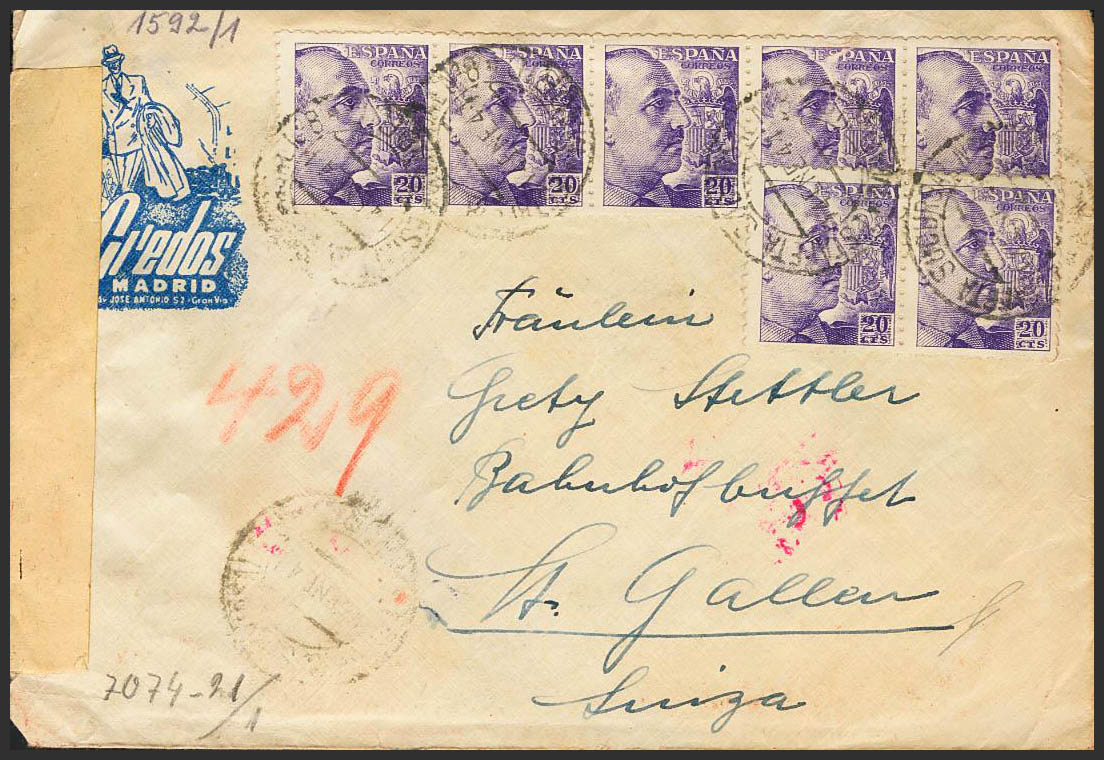 1592/1
ESPAÑA ESPAÑA ESPAÑA ESPAÑA ESPAÑA
CORREOS CORREOS CORREOS CORREOS CORREOS
20 CTS 20 CTS 20 CTS
ESPAÑA ESPAÑA
CORREOS CORREOS
20 CTS 20 CTS
Gredos
MADRID
JOSE ANTONIO 52 - Gran Via
Fräulein
Grety Stettler
Bahnhofbuffet
St. Gallen
Suiza
429
7074-21/1